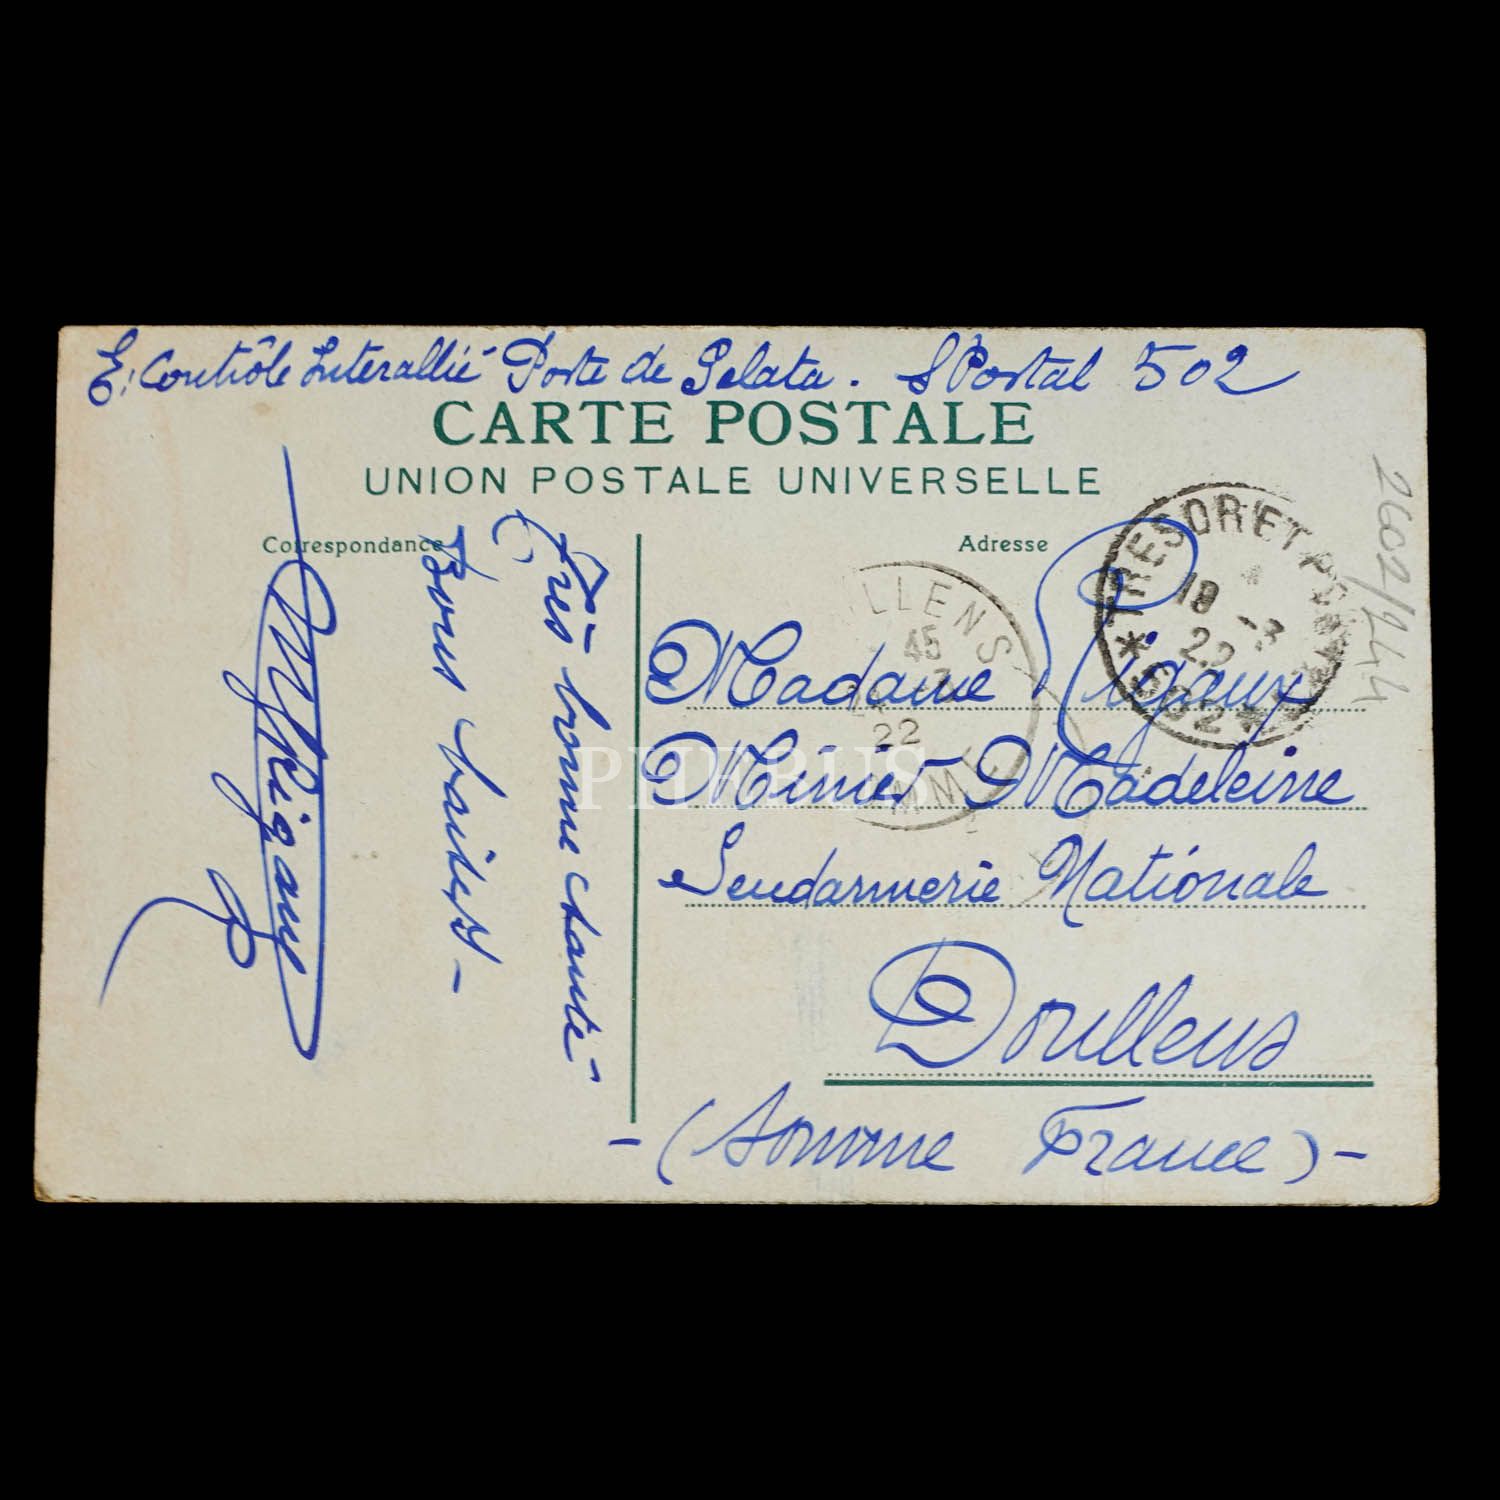 E. Contrôle Interallié Poste de Gelata. SPostal 502
CARTE POSTALE
UNION POSTALE UNIVERSELLE
Correspondance
Adresse
Très bonne santé -
Bons baisers -
MRigaux
Madame Rigaux
Minier Madeleine
Gendarmerie Nationale
Doullens
- (Somme France) -
TRESOR ET POSTES
18 -3
22
* 502 *
LLENS
45
22
2602/144
PHEBUS